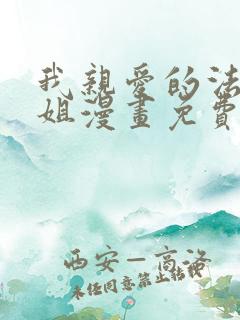 我親愛的法
姐漫畫免費
西安－高洛
未任同意禁止转载